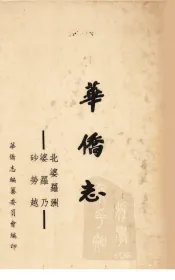 華僑志
北婆羅洲
婆羅乃
砂勞越
華僑志編纂委員會編印